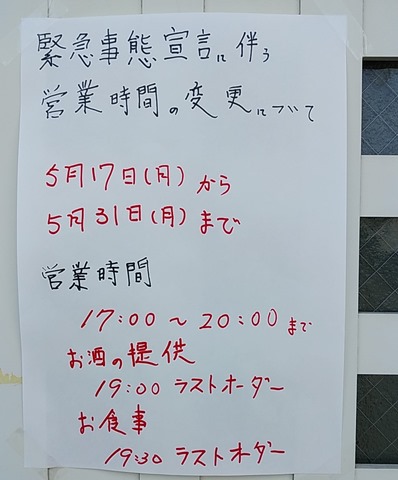 緊急事態宣言に伴う
営業時間の変更について
5月17日(月)から
5月31日(月)まで
営業時間
17:00〜20:00まで
お酒の提供
19:00 ラストオーダー
お食事
19:30 ラストオーダー